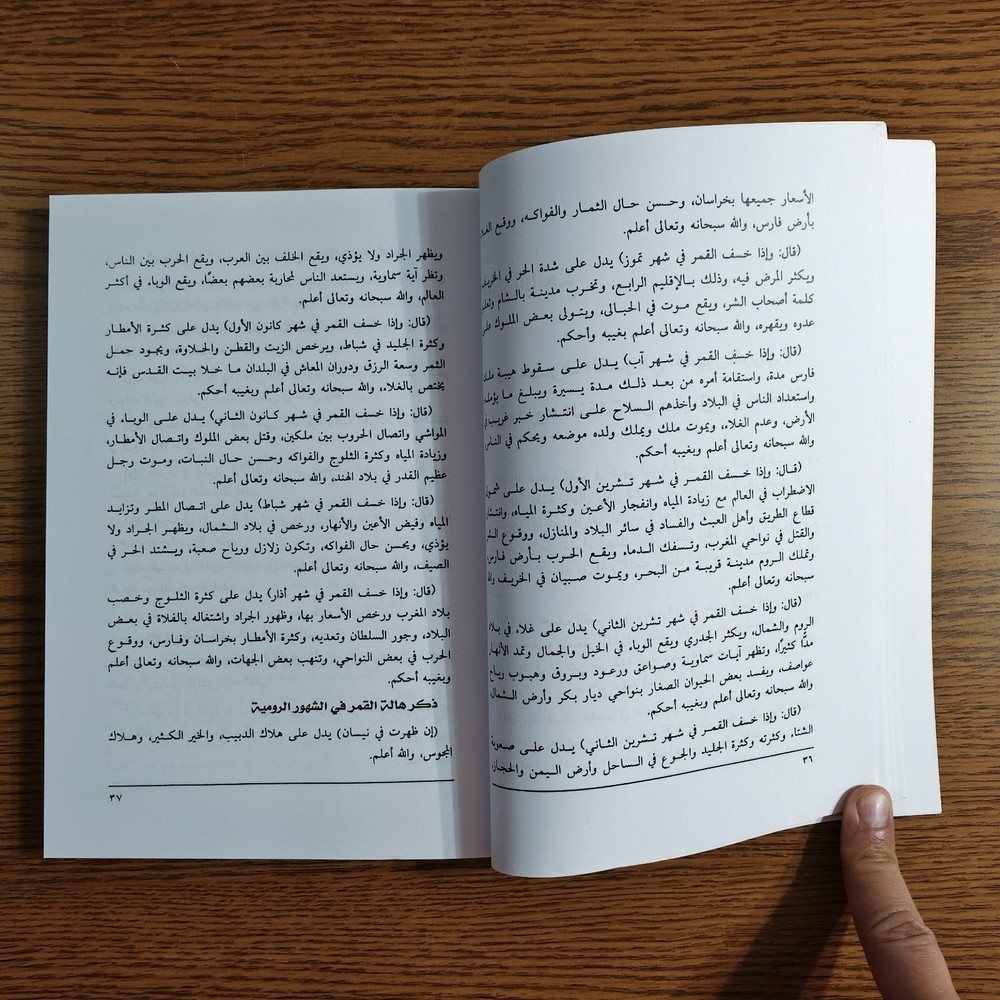 الأسعار جميعها بخراسان، وحسن حال الثمار والفواكه، ووقع
بأرض فارس، والله سبحانه وتعالى أعلم.
(قال: وإذا خسف القمر في شهر تموز) يدل على شدة الحر في
ويكثر المرض فيه، وذلك بالإقليم الرابع، وتخرب مدينة بالشام
كلمة أصحاب الشر، ويقع موت في الحبالى، ويتولى بعض الملوك على
عدوه ويقهره، والله سبحانه وتعالى أعلم بغيبه وأحكم.
(قال: وإذا خسف القمر في شهر آب) يدل على سقوط هيبة
فارس مدة، واستقامة أمره من بعد ذلك مدة يسيرة ويبلغ ما يؤمله
واستعداد الناس في البلاد وأخذهم السلاح على انتشار خبر غريب في
الأرض، وعدم الغلاء، ويموت ملك ويملك ولده موضعه ويحكم في الناس
والله سبحانه وتعالى أعلم وبغيبه أحكم.
(قال: وإذا خسف القمر في شهر تشرين الأول) يدل على
الاضطراب في العالم مع زيادة المياه وانفجار الأعين وكثرة المياه،
قطاع الطريق وأهل العبث والفساد في سائر البلاد والمنازل، ووقوع
والقتل في نواحي المغرب، وتسفك الدماء، ويقع الحرب بأرض فارس،
وتملك الروم مدينة قريبة من البحر، ويموت صبيان في الخريف والله
سبحانه وتعالى أعلم.
(قال: وإذا خسف القمر في شهر تشرين الثاني) يدل على غلاء في بلاد
الروم والشمال، ويكثر الجدري ويقع الوباء في الخيل والجمال وتمد الأنهار
مدًّا كثيرًا، وتظهر آيات سماوية وصواعق ورعود وبروق وهبوب رياح
عواصف، ويفسد بعض الحيوان الصغار بنواحي ديار بكر وأرض الشمال
والله سبحانه وتعالى أعلم وبغيبه أحكم.
(قال: وإذا خسف القمر في شهر تشرين الثاني) يدل على صعوبة
الشتاء وكثرته وكثرة الجليد والجوع في الساحل وأرض اليمن والحجاز،
٣٦
ويظهر الجراد ولا يؤذي، ويقع الخلف بين العرب، ويقع الحرب بين الناس،
وتظر آية سماوية، ويستعد الناس لمحاربة بعضهم بعضًا، ويقع الوباء في أكثر
العالم، والله سبحانه وتعالى أعلم.
(قال: وإذا خسف القمر في شهر كانون الأول) يدل على كثرة الأمطار
وكثرة الجليد في شباط، ويرخص الزيت والقطن والحلاوة، ويجود حمل
الثمر وسعة الرزق ودوران المعاش في البلدان ما خلا بيت القدس فإنه
يختص بالغلاء، والله سبحانه وتعالى أعلم وبغيبه أحكم.
(قال: وإذا خسف القمر في شهر كانون الثاني) يدل على الوباء في
المواشي واتصال الحروب بين ملكين، وقتل بعض الملوك واتصال الأمطار،
وزيادة المياه وكثرة الثلوج والفواكه وحسن حال النبات، وموت رجل
عظيم القدر في بلاد الهند، والله سبحانه وتعالى أعلم.
(قال: وإذا خسف القمر في شهر شباط) يدل على اتصال المطر وتزايد
المياه وفيض الأعين والأنهار، ورخص في بلاد الشمال، ويظهر الجراد ولا
يؤذي، ويحسن حال الفواكه، وتكون زلازل ورياح صعبة، ويشتد الحر في
الصيف، والله سبحانه وتعالى أعلم.
(قال: وإذا خسف القمر في شهر أذار) يدل على كثرة الثلوج وخصب
بلاد المغرب ورخص الأسعار بها، وظهور الجراد واشتغاله بالفلاة في بعض
البلاد، وجور السلطان وتعديه، وكثرة الأمطار بخراسان وفارس، ووقوع
الحرب في بعض النواحي، وتنهب بعض الجهات، والله سبحانه وتعالى أعلم
وبغيبه أحكم.
ذكر هالة القمر في الشهور الرومية
(إن ظهرت في نيسان) يدل على هلاك الدبيب، والخير الكثير، وهلاك
المجوس، والله أعلم.
٣٧